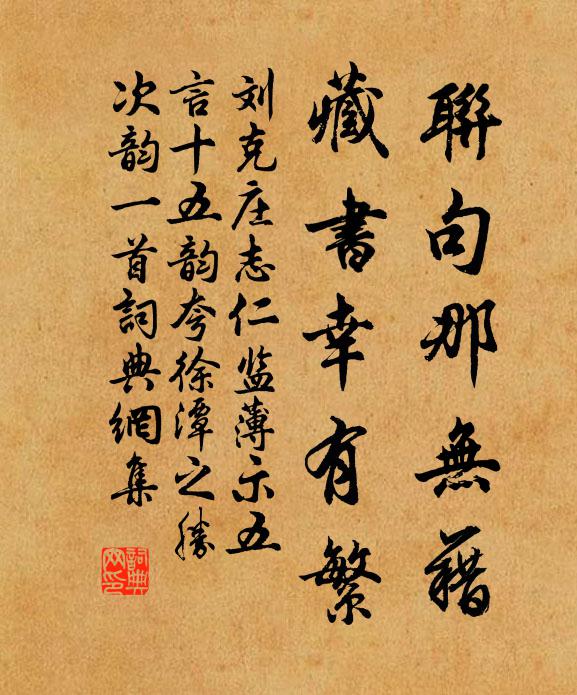 聯句那無籍
藏書幸有繁
刘克庄志仁监薄示五
言十五韵夸徐潭之勝
次韵一首詞典網集
詞典网印